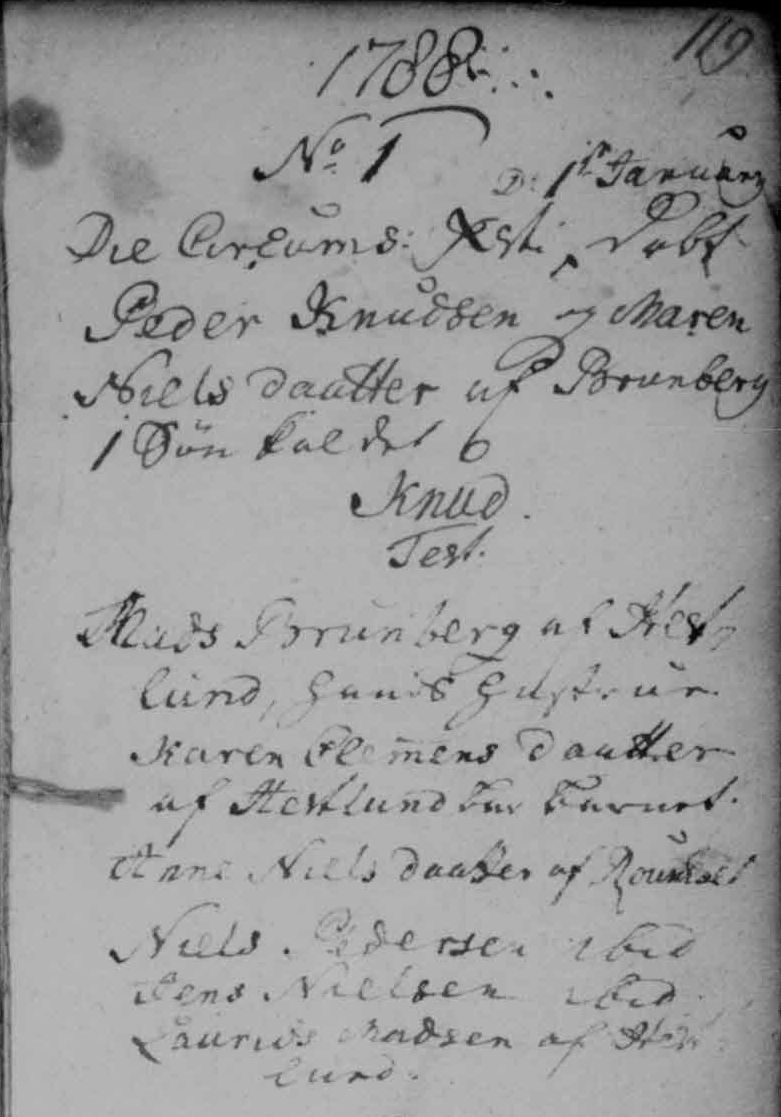 119
1788
No 1
D: 1ste January
Die Circums: Xsti, Døbt
Peder Knudsen og Maren
Niels daatter af Brunberg
1 Søn kaldet
Knud.
Test.
Mads Brunberg af Hest
lund, hands hustrue
Karen Clemens daatter
af Hestlund bar barnet.
Anne Niels daatter af
Niels Pedersen ibid
Jens Nielsen ibid
Laurids Madsen af Hest
lund.